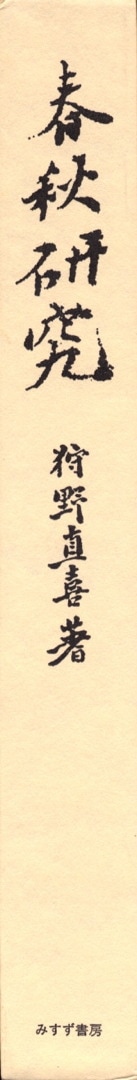 春秋研究
狩野直喜著
みすず書房